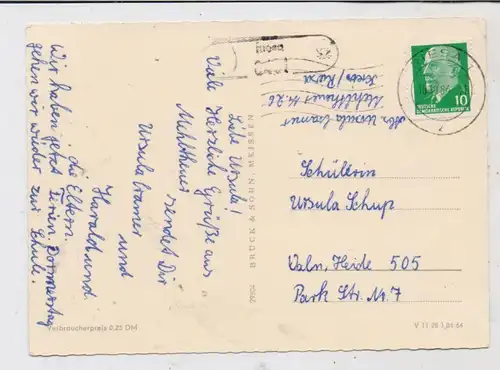 Liebe Ursula!
Viele Herzliche Grüße aus
Mehltheuer sendet Dir
Ursula Cramer
und
Harald und
die Eltern.
Wir haben jetzt Ferien. Donnerstag
gehen wir wieder zur Schule.
Abs. Ursula Cramer
Mehltheuer
BRÜCK & SOHN, MEISSEN
Schülerin
Ursula Schup
Valn. Heide 505
Park Str. Nr. 7
10
DEUTSCHE
DEMOKRATISCHE REPUBLIK
Verbraucherpreis 0,25 DM
V 11 28 1,01 64